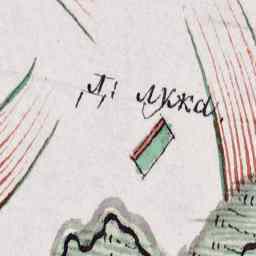 Д: лужа.